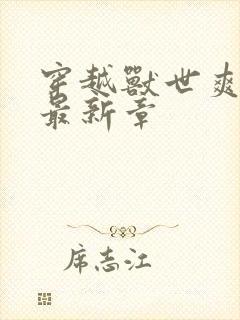 穿越獸世爽
最新章
席志江